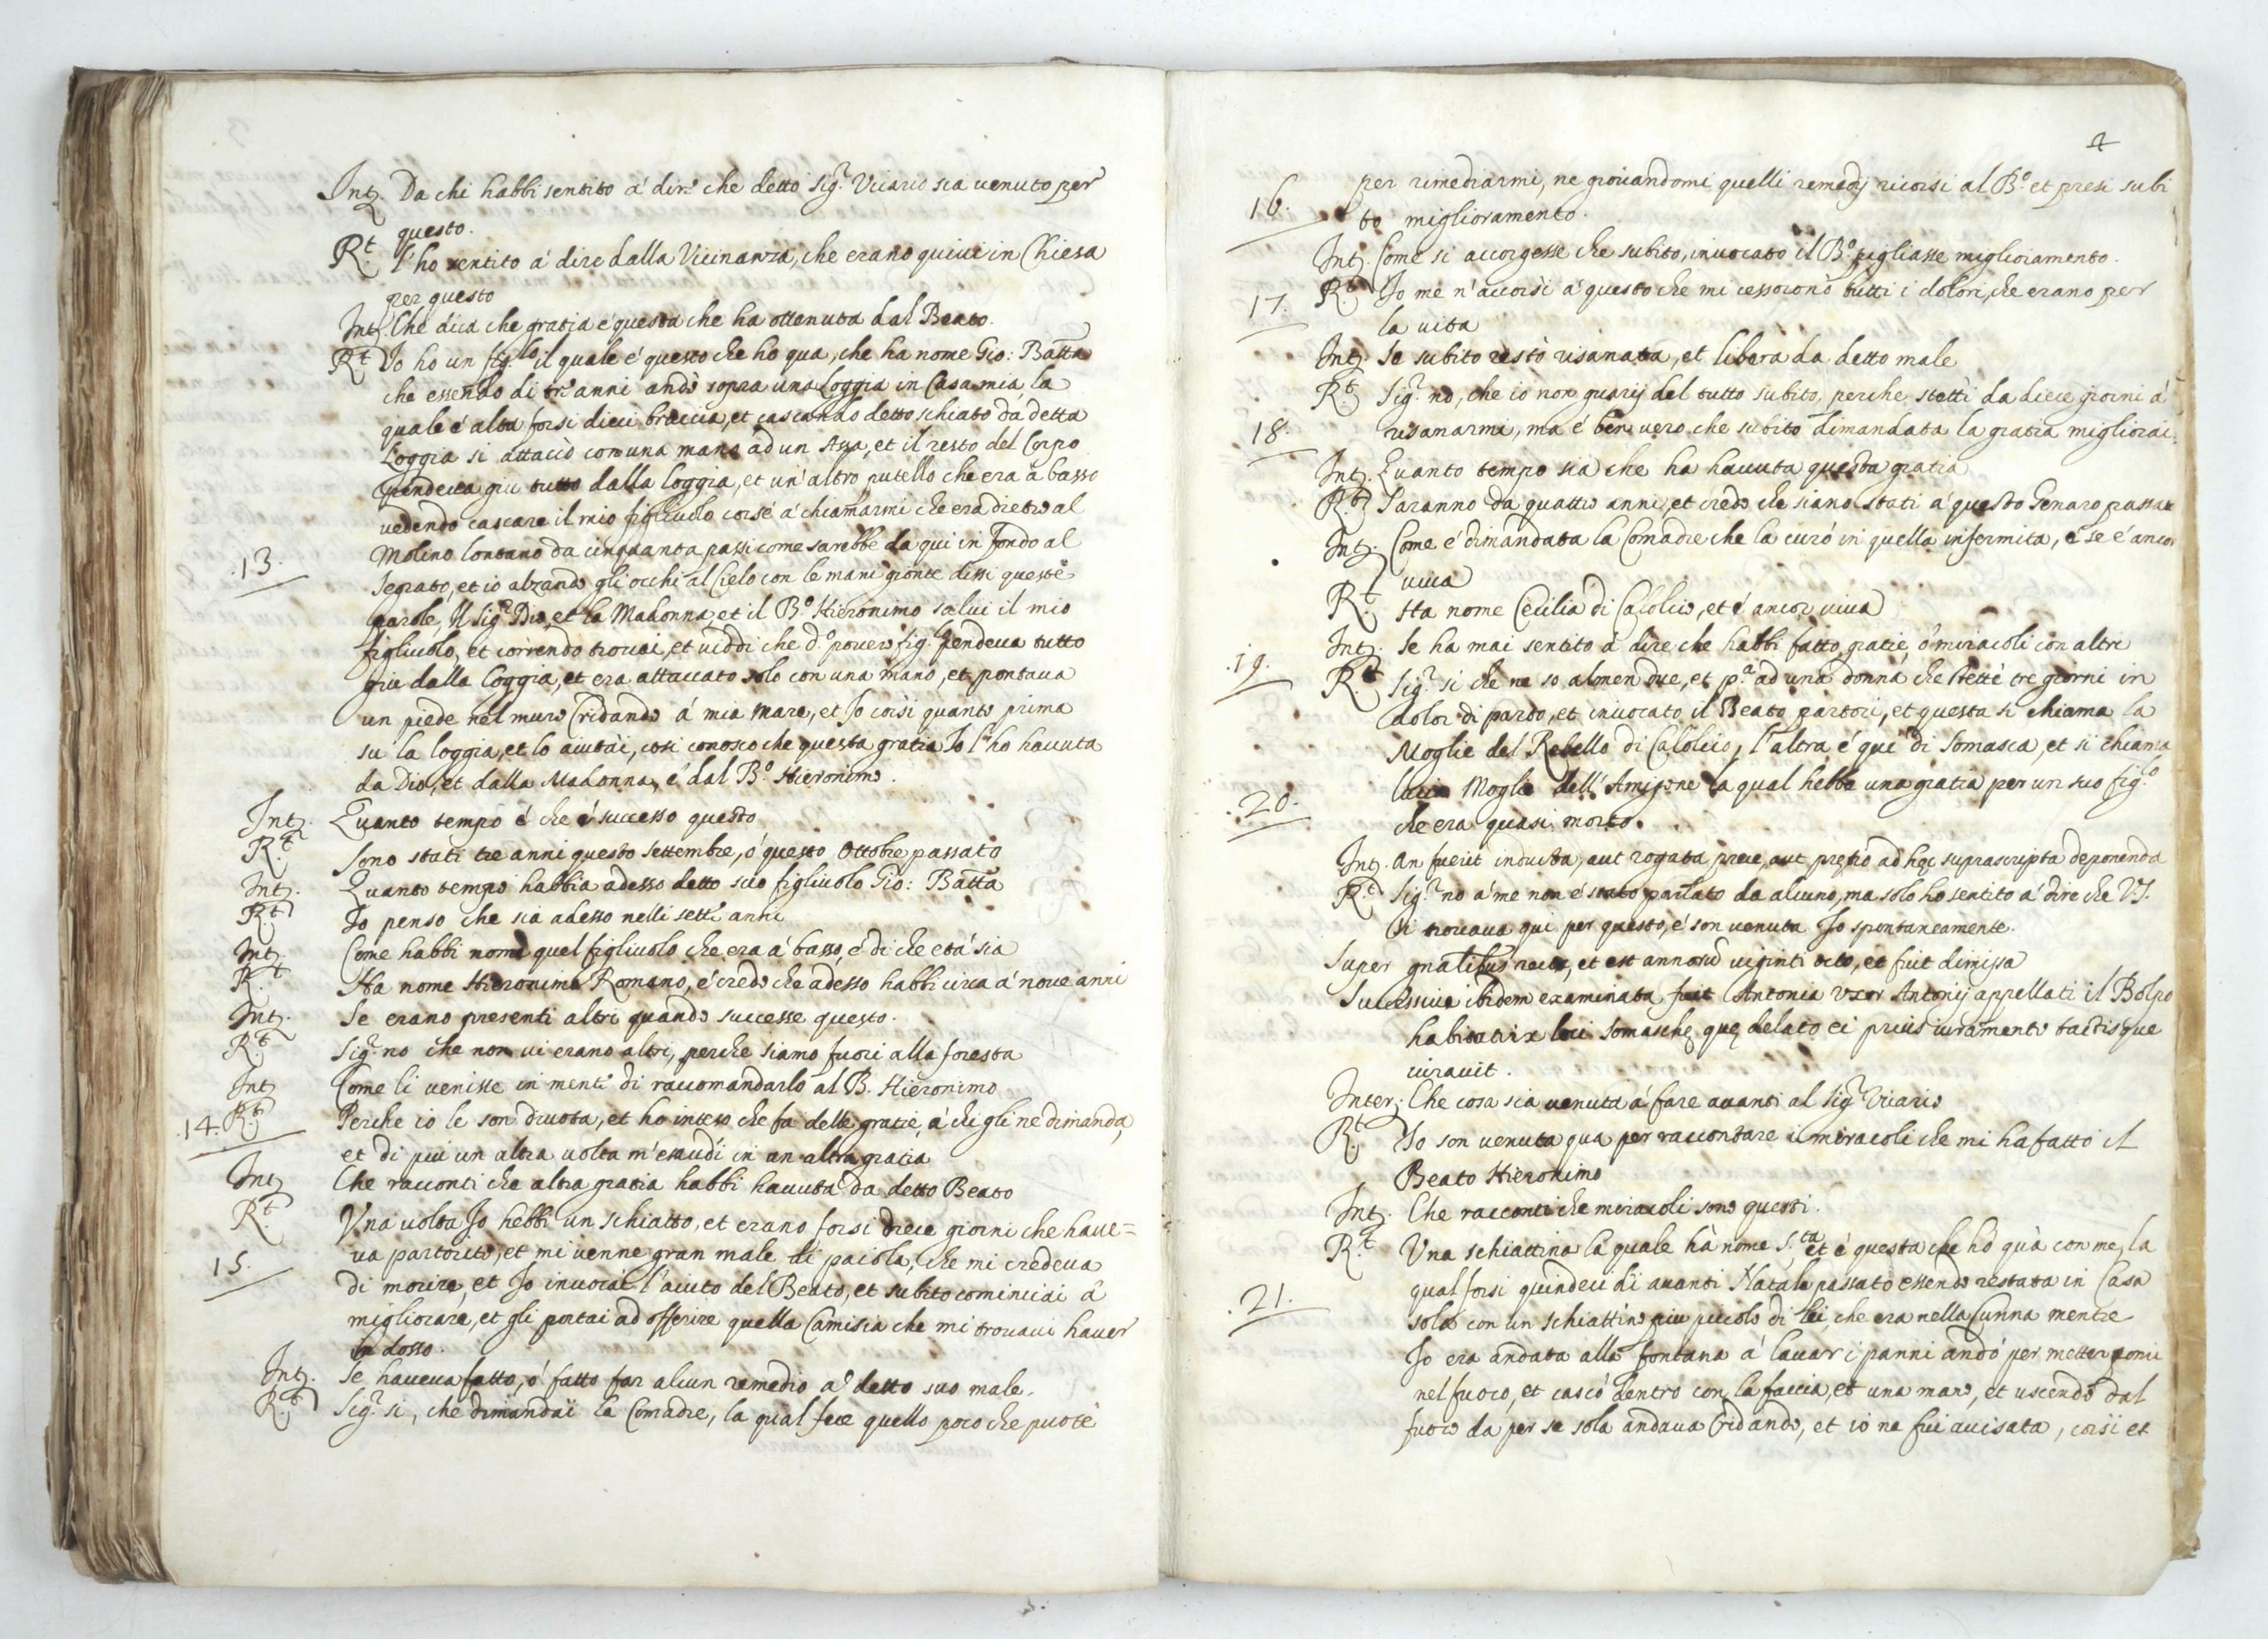 Int. Da chi habbi sentito á dire che detto Sig.r Vicario sia venuto per
questo.
R.t l'ho sentito á dire dalla Vicinanza, che erano quivi in Chiesa
per questo
Int. Che dica che gratia é questa che ha ottenuta dal Beato.
R.t Io ho un fig.lo il quale é questo che ho qua, che ha nome Gio: Batta
che essendo di tre anni andò sopra una Loggia in Casa mia, la
quale é alta forsi dieci braccia, et cascando detto schiato da detta
Loggia si attaciò con una mano ad un Assa, et il resto del Corpo
pendeva giu tutto dalla loggia, et un'altro putello che era á basso
vedendo cascare il mio figliuolo corse á chiamarmi che era dietro al
Molino lontano da cinquanta passi come sarebbe da qui in fondo al
13. Segrato, et io alzando gli occhi al Cielo con le mani gionte dissi queste
parole, Il Sig.r Dio, et la Madonna, et il B.o Hieronimo salvi il mio
figliuolo, et correndo trovai, et viddi che d.o povero fig. pendeva tutto
giu dalla loggia, et era attaccato solo con una mano, et pontava
un piede nel muro Cridando á mia mare, et Io corsi quanto prima
su la loggia, et lo aiutai, cosi conosco che questa gratia Io l'ho havuta
da Dio, et dalla Madonna, é dal B.o Hieronimo.
Int. Quanto tempo é che é successo questo
R.t Sono stati tre anni questo settembre, ó questo Ottobre passato
Int. Quanto tempo habbia adesso detto suo figliuolo Gio: Batta
R.t Io penso che sia adesso nelli sette anni
Int. Come habbi nome quel figliuolo che era á basso, é di che etá sia
R.t Ha nome Hieronimo Romano, é credo che adesso habbi circa á nove anni
Int. Se erano presenti altri quando successe questo.
R.t Sig.r no che non vi erano altri, perche siamo fuori alla foresta
Int Come li venisse in mente di raccomandarlo al B. Hieronimo
14. R.t Perche io le son divota, et ho inteso che fa delle gratie, á chi gli ne dimanda,
et di piu un altra volta m'esaudi in un altra gratia
Int Che racconti che altra gratia habbi havuta da detto Beato
R.t Una volta Io hebbi un schiatto, et erano forsi diece giorni che have=
15. va partorito, et mi venne gran male di paiola, che mi credeva
di morire, et Io invocai l'aiuto del Beato, et subito cominciai á
migliorare, et gli portai ad offerire quella Camisia che mi trovavi haver
in dosso.
Int. Se haveva fatto, ó fatto far alcun remedio á detto suo male.
R.t Sig.r si, che dimandai la Comadre, la qual fece quello poco che puote
4
16. per rimediarmi, ne giovandomi quelli remedij ricorsi al B.o et presi subi
to miglioramento.
Int. Come si accorgesse che subito, invocato il B.o pigliasse miglioramento.
17. R.t Io me n'accorsi á questo che mi cessorono tutti i dolori, che erano per
la vita
Int. Se subito restò risanata, et libera da detto male
R.t Sig.r no, che io non guarij del tutto subito, perche stetti da diece giorni á
18. risanarmi, ma é ben vero che subito dimandata la gratia migliorai.
Int. Quanto tempo sia che ha havuta questa gratia
R.t Saranno da quattro anni, et credo che siano stati á questo Genaro passato
Int. Come é dimandata la Comadre che la curó in quella infermita, é se é ancor
viva
R.t Ha nome Cecilia di Calolcio, et é ancor viva
Int. Se ha mai sentito á dire che habbi fatto gratie, ó miracoli con altri
19. R.t Sig.r si che ne so almen due, et p.a ad una donna che stette tre giorni in
dolor di parto, et invocato il Beato partori, et questa si chiama la
Moglie del Rebello di Calolcio, l'altra é qui di Somasca, et si chiama
20. Lucia Moglie dell'Amigone la qual hebbe una gratia per un suo fig.lo
che era quasi morto.
Int. An fuerit inducta, aut rogata prece, aut pretio ad hęc suprascripta deponenda
R.t Sig.r no á me non é stato parlato da alcuno, ma solo ho sentito á dire che V.S.
si trovava qui per questo, é son venuta Io spontaneamente.
Super gnalibus recte, et est annorũ viginti octo, et fuit dimissa
Successive ibidem examinata fuit Antonia Uxor Antonij appellati il Bolpo
habitatrix loci Somaschę, quę delato ei prius iuramento tactisque
iuravit.
Inter. Che cosa sia venuta á fare avanti al Sig.r Vicario
R.t Io son venuta qua per raccontare i miracoli che mi ha fatto il
Beato Hieronimo
Int. Che racconti che miracoli sono questi.
R.t Una schiattina la quale hà nome S.ta et é questa che hò quà con me, la
qual forsi quindeci dì avanti Natale passato essendo restata in Casa
21. sola con un schiattino piu piccolo di lei, che era nella Cunna mentre
Io era andata alla fontana á lavar i panni andó per metter pomi
nel fuoco, et cascó dentro con la faccia, et una mano, et uscendo dal
fuoco da per se sola andava Cridando, et io ne fui avisata, corsi et